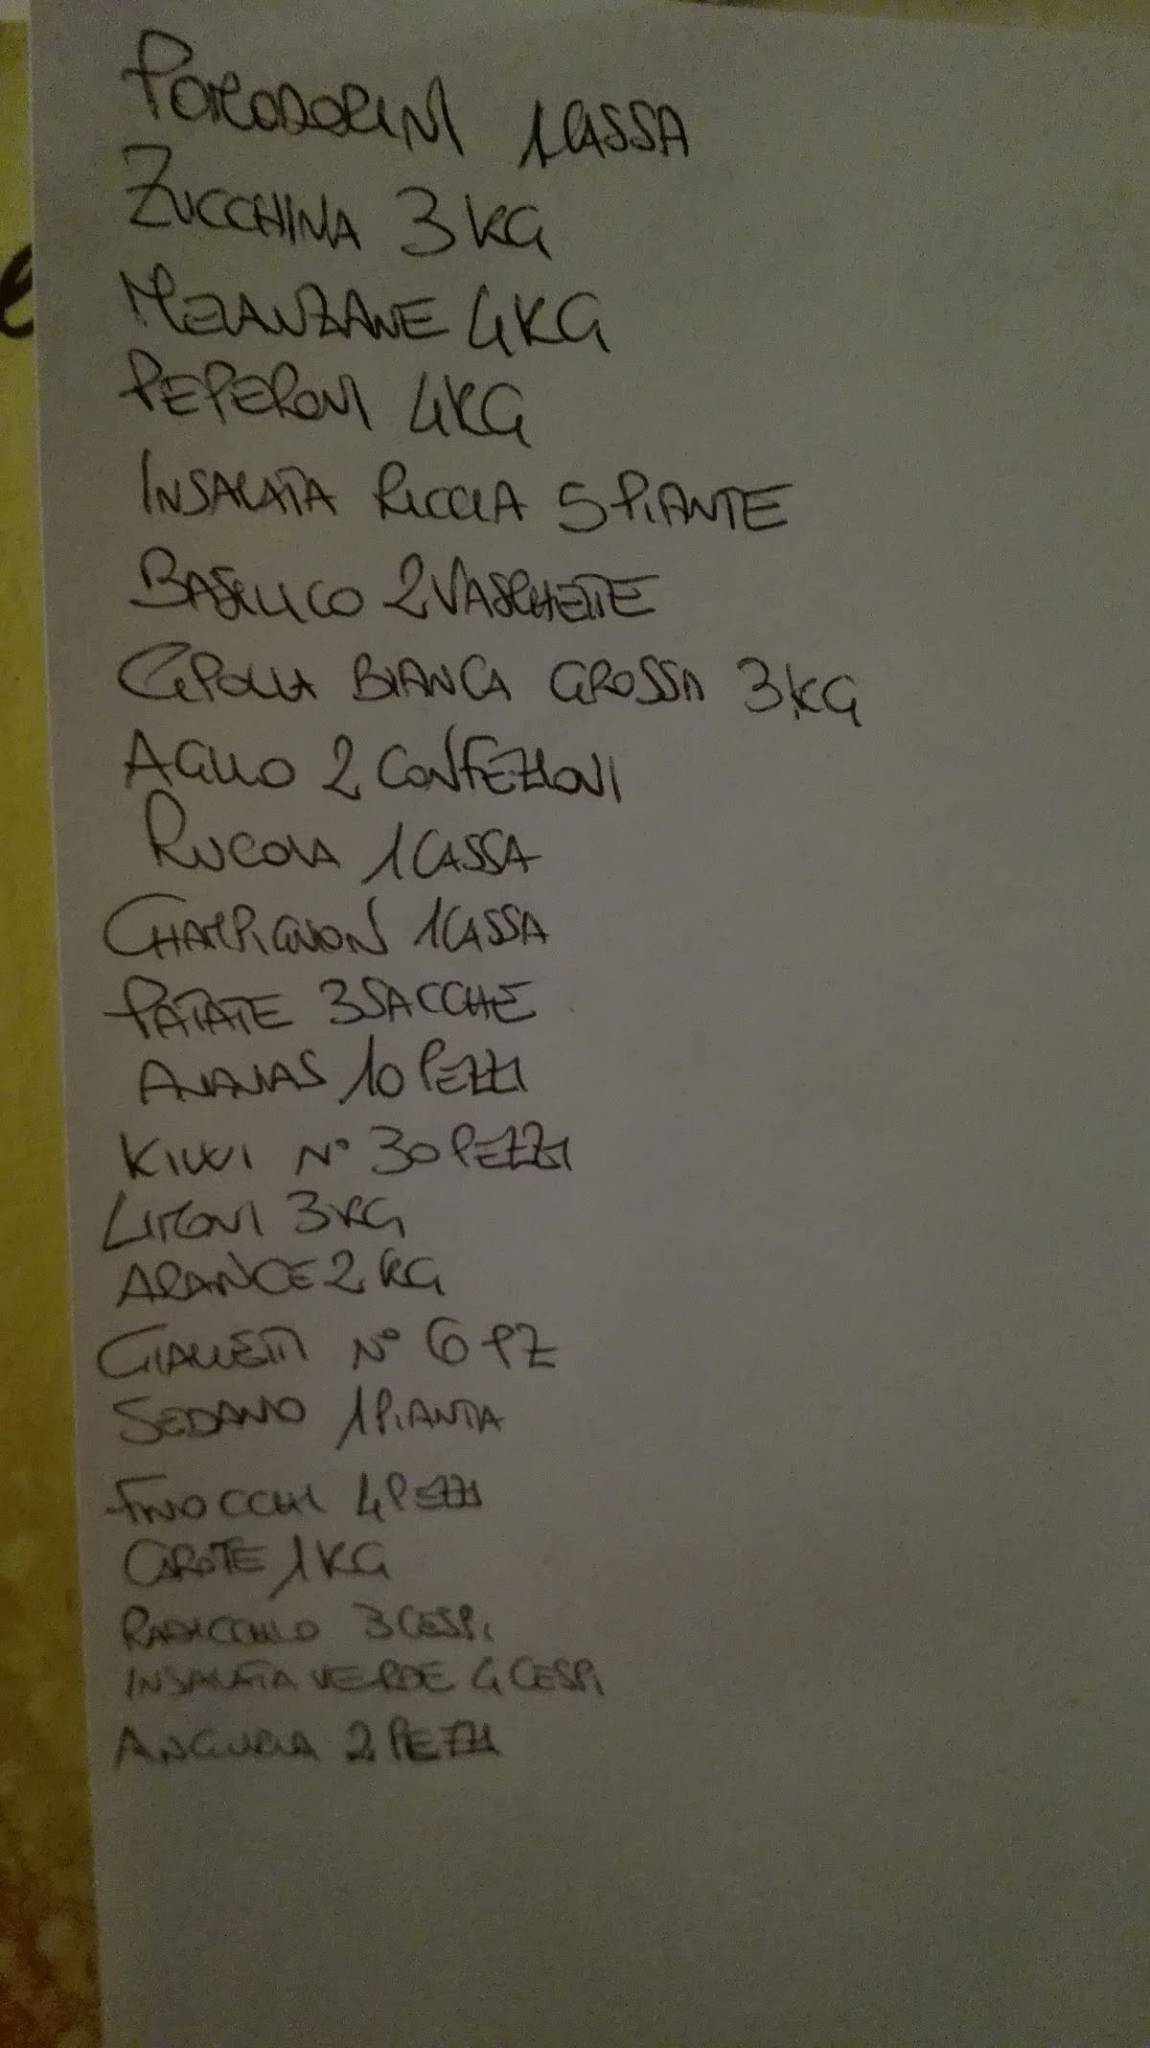 POMODORINI 1 CASSA
ZUCCHINA 3 KG
MELANZANE 4 KG
PEPERONI 4 KG
INSALATA RICCIA 5 PIANTE
BASILICO 2 VASCHETTE
CIPOLLA BIANCA GROSSA 3 KG
AGLIO 2 CONFEZIONI
RUCOLA 1 CASSA
CHAMPIGNON 1 CASSA
PATATE 3 SACCHE
ANANAS 10 PEZZI
KIWI N° 30 PEZZI
LIMONI 3 KG
ARANCE 2 KG
GIALLETTI N° 6 PZ
SEDANO 1 PIANTA
FINOCCHI 4 PEZZI
CAROTE 1 KG
RADICCHIO 3 CESPI
INSALATA VERDE 4 CESPI
ANGURIA 2 PEZZI